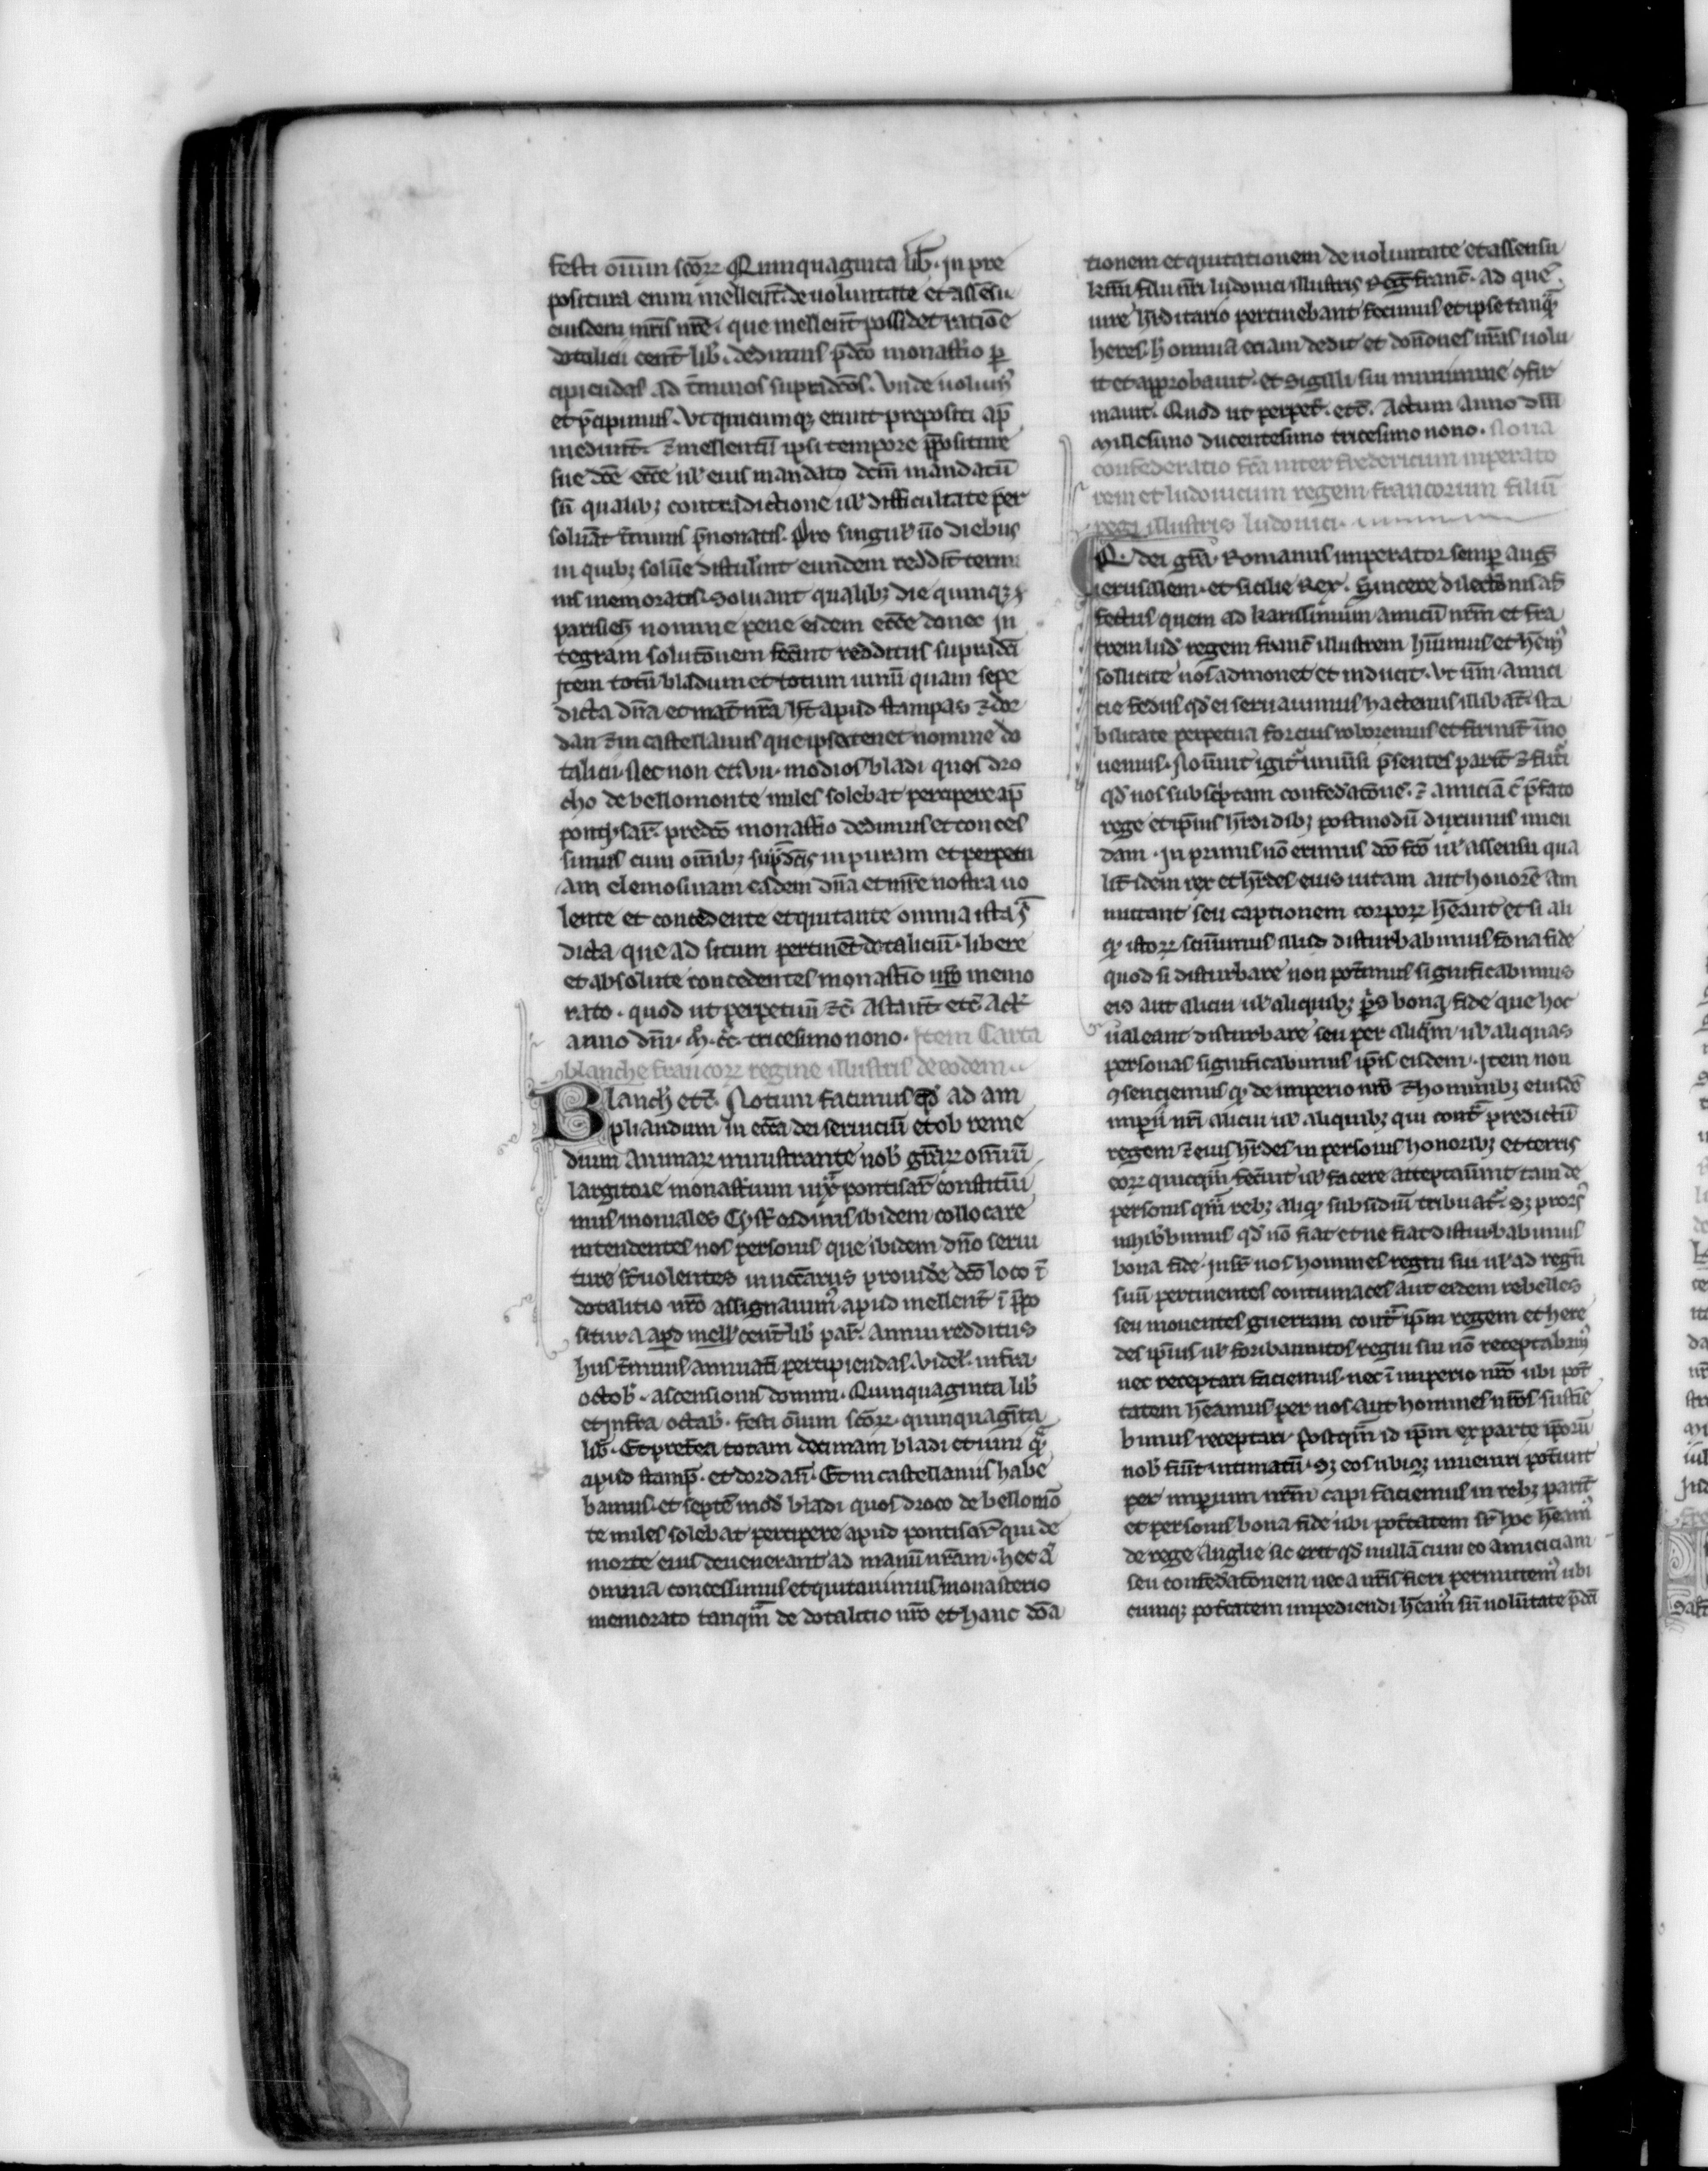 festi om̄iun sc̄oꝝ Quinquaginta lib̄. in pre
positura enim mellent̄. de uoluntate et assensu
eiusdem mr̄is nr̄e. que mellent̄ possidet ratiōe
dotalicii cent̄ lib̄. dedimus p̄dc̄o monast̄io ꝑ
cipiendas ad t̄minos supradc̄os. Vnde uolumꝰ
et p̄cipimus. Vt quicumqꝫ erunt prepositi ap̄
medunt̄. ⁊ mellentū ipsi tempore p̄positure
sue dc̄e ecc̄e ul̓ eius mandato dc̄m mandatū
sn̄ qualibꝫ contradictione ul̓ difficultate per
soluāt t̄minis p̄nonatis. Pro singul̓ ūo diebus
in quibꝫ solūe distul̓int eundem reddit̄ termi
nis memoratis. Soluant qualibꝫ die quinqꝫ s̄
parisieñ nomine pene eidem ecc̄e donec in
tegram solutōnem fec̄int redditus supradc̄i
Item totū bladum et totum uinū quam sepe
dicta dn̄a et mat̄ nr̄a ht̄ apud stampas ⁊ dor
dan ⁊ in castellaniis que ipse tenet nomine do
talicii. Nec non et. vii. modios bladi quos dro
cho de bellomonte miles solebat percipere ap̄
pontysar̄. predc̄o monast̄io dedimus et conces
simus cum om̄ibꝫ sup̄dc̄is in puram et perpetu
am elemosinam eadem dn̄a et mr̄e nostra uo
lente et concedente et quitante omnia ista s̄
dicta que ad situm pertinēt dotaliciū. libere
et absolute concedentes monast̄io nr̄o memo
rato. quod ut perpetuū ⁊c̄. Astant̄ etc̄ Act̄
anno dn̄i. m̊. cc̊. tricesimo nono. Item Carta
blanche francoꝝ regine illustris de eodem
Blanch̓ etc̄. Notum facimus qd̓ ad am
pliandum in ecc̄a dei seruiciū et ob reme
dium animaꝝ ministrante nob̓ gr̄aꝝ om̄iū
largitore monast̄ium iux̄ pontisar̄ constitūi
mus moniales Cyst̓ ordinis ibidem collocare
intendentes nos personis que ibidem dn̄o serui
ture st̄ uolentes in nec̄c̄ariis prouid̓e dc̄o loco ī
dotalitio nr̄o assignauimꝰ apud mellent̄ ī p̄po
situra apd mell̓ cent̄ lib̓ par̄. annui redditus
hiis t̄minis annuati percipiendas. videl̓. infra
octob̓. ascensionis domini. Quinquaginta lib̓
et infra octab̓. festi ōium sc̄oꝝ. quinquagīta
lib̓. Et pret̄ea totam decimam bladi et uini q̄
apud stamp̄. et dordañ. Et in castellaniis habe
bamus. et septē mod̓ bladi quos droco de bellomō
te miles solebat percipere apud pontisar̄ qui de
morte eius deuenerant ad manū nr̄am. hec āt
omnia concessimus et quitauimus monasterio
memorato tanqm̄ de dotalitio nr̄o et hanc dōa
tionem et quitationem de uoluntate et assensu
kr̄mi filii nr̄i ludouici illustris Reg̓ franc̄. ad quē
iure h̓editario pertinebant fecimus et ipse tanqꝫ
heres h̓ omnia eciam dedit et donōnes nr̄as uolu
it et approbauit. et sigilli sui munimine ꝯfir
mauit. Quod ut perpet̄. etc̄. Actum anno dn̄i
Millesimo ducentesimo tricesimo nono. Noua
confederatio fc̄a inter fredericum imperato
rem et ludouicum regem francorum filiū
regis illustris ludouici.
F. dei gr̄a Romanus imperator semp̄ aug̓
ierusalem. et sicilie Rex. Sincere dilectōnis af̄
fectus quem ad karissimum amicū nr̄m et fra
trem lud̓ regem franc̄ illustrem hūimus et hēmꝰ
sollicite nos admonet et inducit. Vt nr̄m amici
cie fedus qd̓ ei seruauimus hactenus illibat̄. sta
bilitate perpetua forcius roboremus et firmiꝰ īno
uemus. Nouīnt igit̄ uniūsi p̄sentes parit̄ ⁊ fut̄i
qd̓ nos subsc̄ptam confed̓atōne. ⁊ amiciā c̄ p̄fato
rege et ip̄ius h̓edibꝫ postmodū duximus ineu
dam. In primis nō erimus dc̄o fc̄o ul̓ assensu qua
lit̄ idem rex et h̓edes eius uitam aut honorē am
mittant seu captionem corpoꝝ hēant et si ali
qͥ istoꝝ scīuimus illud disturbabimus bona fide
quod si disturbare non pot̄imus significabimus
eis aut alicui ul̓ aliquibꝫ p̄s bona fide que hoc
ualeant disturbare seu per aliqm̄ ul̓ aliquas
personas significabimus ip̄is eisdem. Item non
ꝯsenciemus qͥ de imperio nr̄o ⁊ hominibꝫ eiusdē
imp̄ii nr̄i alicui ul̓ aliquibꝫ qui cont̄ predictū
regem ⁊ eius h̓edes in personis honoribꝫ et terris
eoꝝ quicqm̄ fec̄int ul̓ facere atteptaūint tam de
personis qm̄ rebꝫ aliqͥ subsidiū tribuat̄. sꝫ prorsꝰ
inhib̓bimus qd̓ nō fiat et ne fiat disturbabimus
bona fide. Insuꝑ nos homines regni sui ul̓ ad regn̄
suū pertinentes contumaces aut eidem rebelles
seu mouentes guerram cont̄ ip̄m regem et here
des ip̄ius ul̓ foribannitos regni sui nō receptabimꝰ
nec receptari faciemus. nec ī imperio nr̄o ubi pot̄
tatem hēamus per nos aut homines nr̄os sustīe
bimus receptari. Postqm̄ id ip̄m ex parte ip̄orū
nob̓ fūit intimatū. sꝫ eos ubiqꝫ inueniri pot̄unt
per imp̄ium nr̄m capi faciemus in rebꝫ parit̄
et personis bona fide ubi pot̄tatem sr̄ hoc hēamꝰ
de rege Anglie sic erit qd̓ nullā cum eo amiciciam
seu confed̓atōnem nec a nr̄is fieri permittemꝰ ubi
cumqꝫ pot̄tatem impediendi hēamꝰ sn̄ uolūtate p̄dc̄i